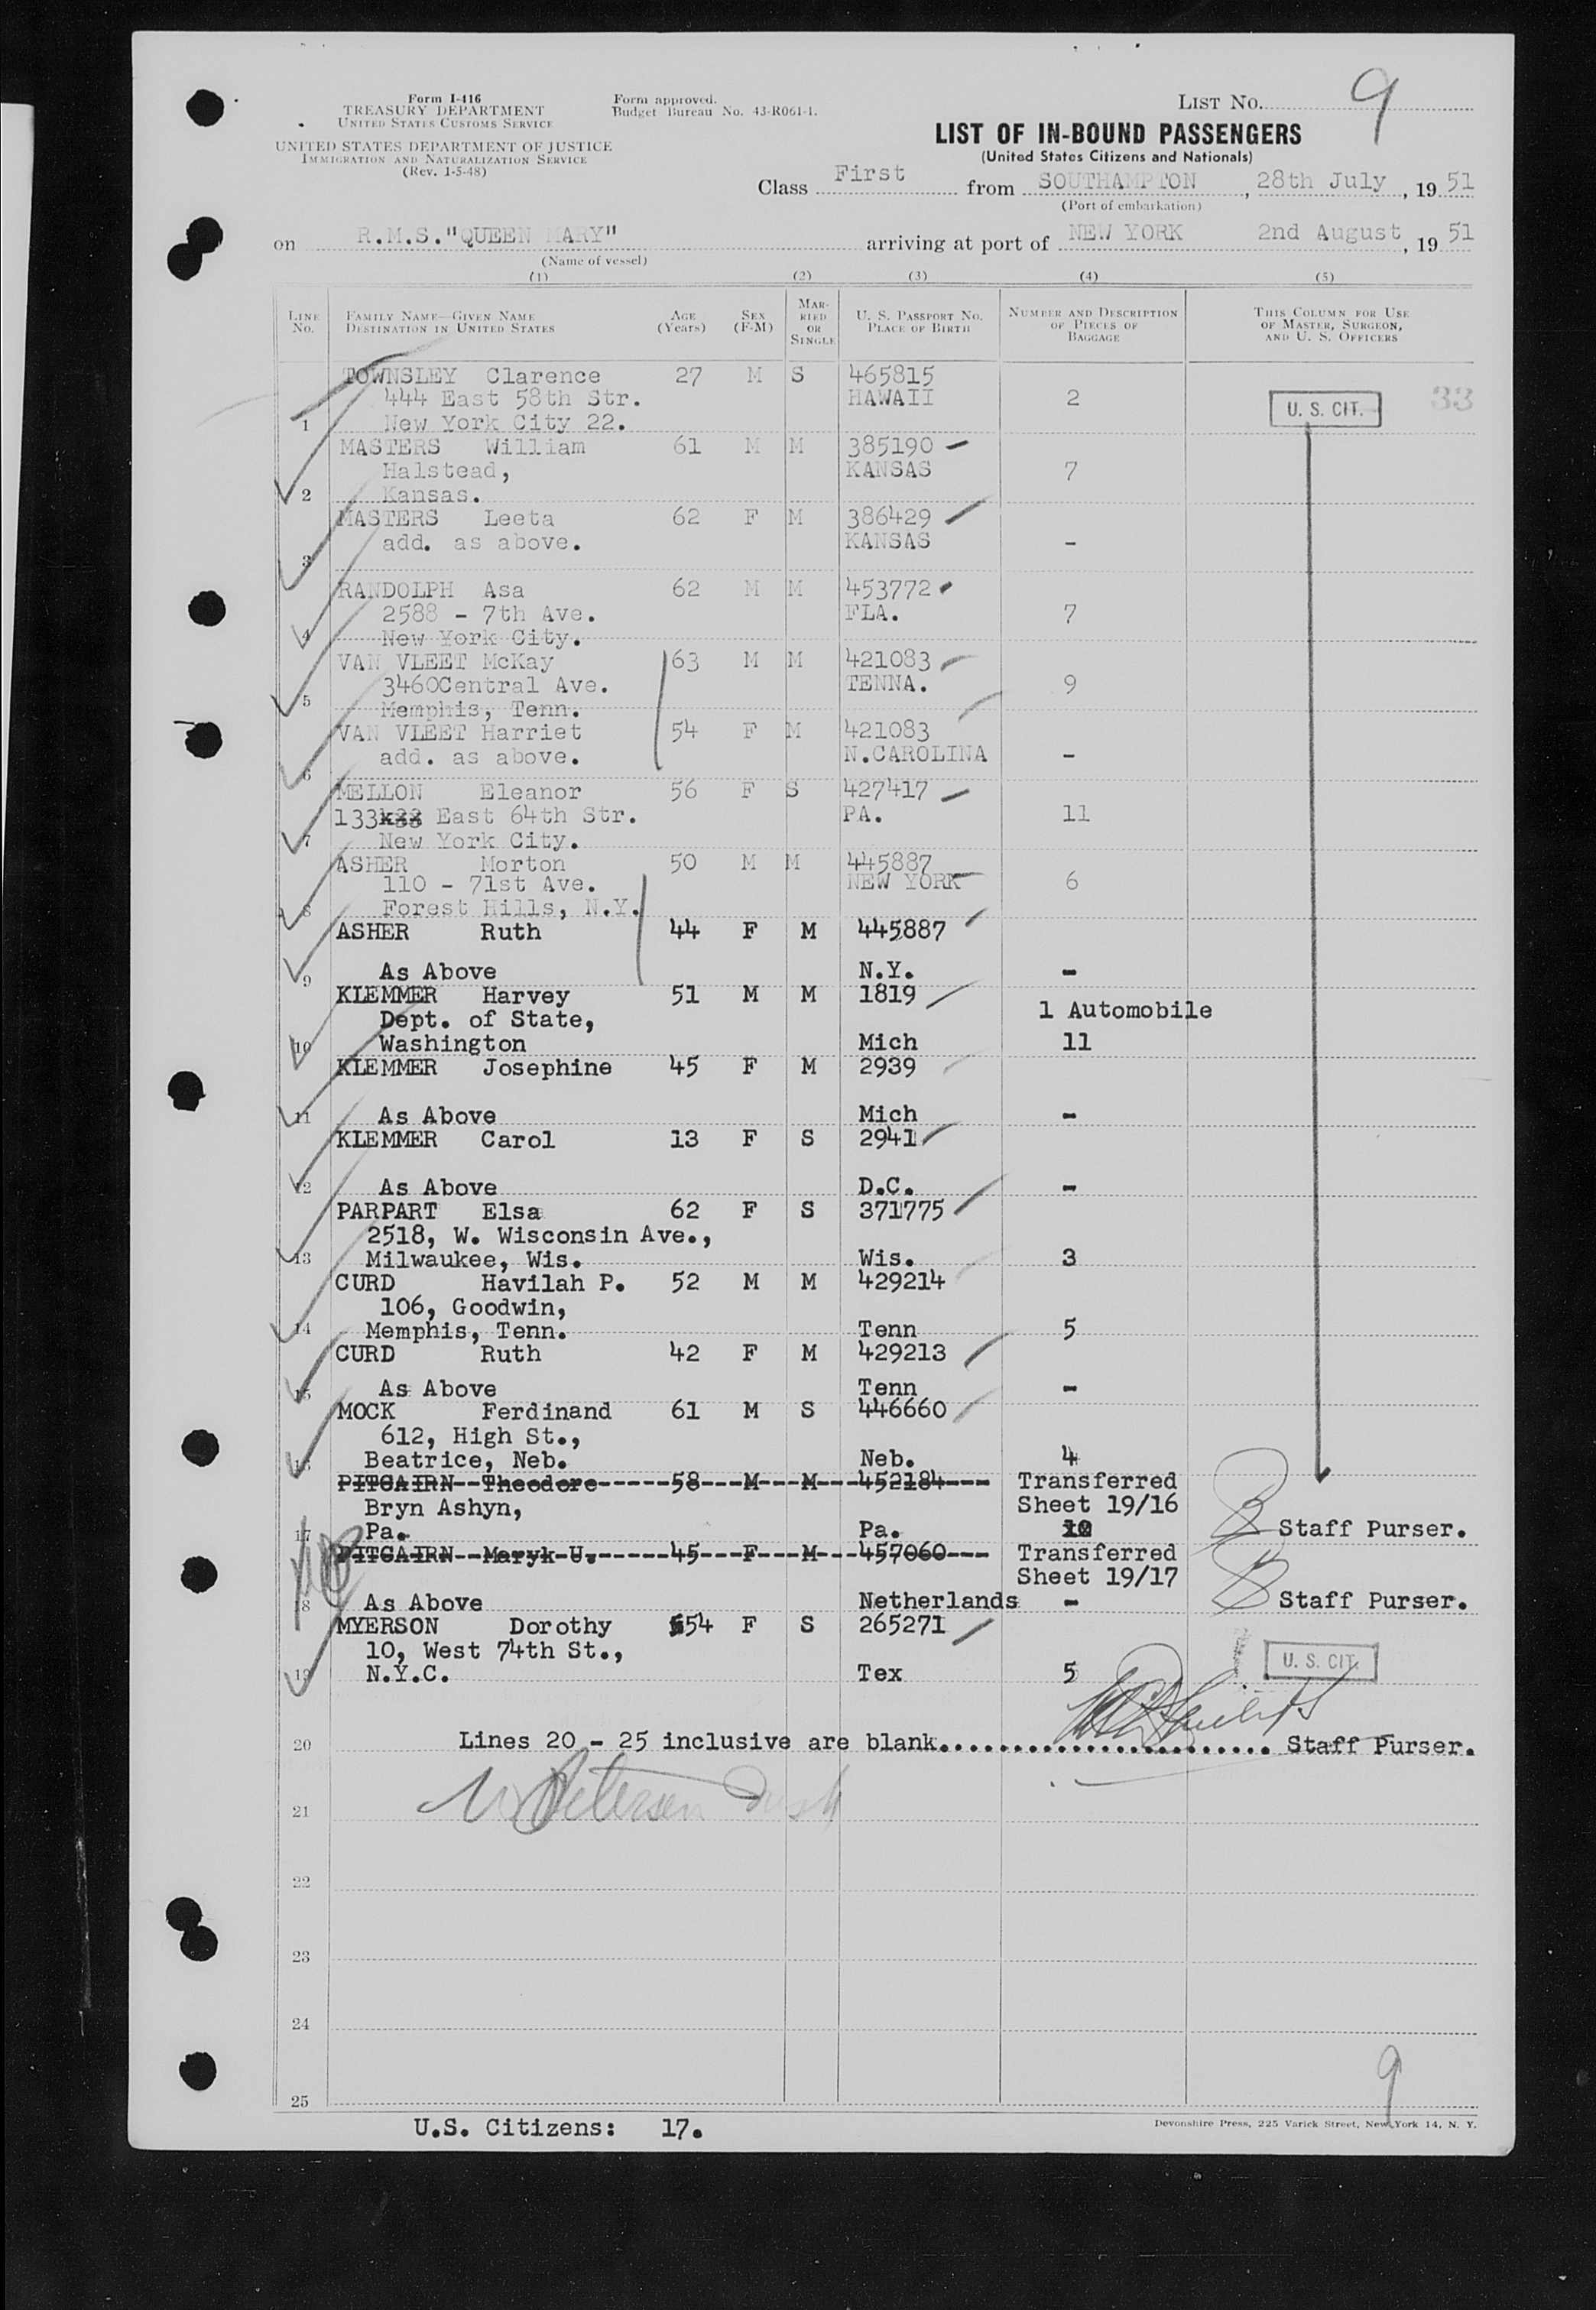 Form I-416
TREASURY DEPARTMENT
UNITED STATES CUSTOMS SERVICE
UNITED STATES DEPARTMENT OF JUSTICE
IMMIGRATION AND NATURALIZATION SERVICE
(Rev. 1-5-48)
Form approved.
Budget Bureau No. 43-R061-1.
LIST NO. 9
LIST OF IN-BOUND PASSENGERS
(United States Citizens and Nationals)
Class First from SOUTHAMPTON, 28th July, 19 51
(Port of embarkation)
on R.M.S."QUEEN MARY" arriving at port of NEW YORK 2nd August, 19 51
(Name of vessel)
(1) (2) (3) (4) (5)
LINE NO. FAMILY NAME—GIVEN NAME DESTINATION IN UNITED STATES AGE (Years) SEX (F-M) MARRIED OR SINGLE U. S. PASSPORT NO. PLACE OF BIRTH NUMBER AND DESCRIPTION OF PIECES OF BAGGAGE THIS COLUMN FOR USE OF MASTER, SURGEON, AND U. S. OFFICERS
TOWNSLEY Clarence 27 M S 465815
444 East 58th Str. HAWAII 2 U. S. CIT. 33
1 New York City 22.
MASTERS William 61 M M 385190
Halstead, KANSAS 7
2 Kansas.
MASTERS Leeta 62 F M 386429
add. as above. KANSAS -
3
RANDOLPH Asa 62 M M 453772
2588 - 7th Ave. FLA. 7
4 New York City.
VAN VLEET McKay 63 M M 421083
3460Central Ave. TENNA. 9
5 Memphis, Tenn.
VAN VLEET Harriet 54 F M 421083
add. as above. N.CAROLINA -
6
MELLON Eleanor 56 F S 427417
133 East 64th Str. PA. 11
7 New York City.
ASHER Morton 50 M M 445887
110 - 71st Ave. NEW YORK 6
8 Forest Hills, N.Y.
ASHER Ruth 44 F M 445887
9 As Above N.Y. -
KLEMMER Harvey 51 M M 1819
Dept. of State, 1 Automobile
10 Washington Mich 11
KLEMMER Josephine 45 F M 2939
11 As Above Mich -
KLEMMER Carol 13 F S 2941
12 As Above D.C. -
PARPART Elsa 62 F S 371775
2518, W. Wisconsin Ave.,
13 Milwaukee, Wis. Wis. 3
CURD Havilah P. 52 M M 429214
106, Goodwin,
14 Memphis, Tenn. Tenn 5
CURD Ruth 42 F M 429213
15 As Above Tenn -
MOCK Ferdinand 61 M S 446660
612, High St.,
16 Beatrice, Neb. Neb. 4
PITCAIRN Theodore 58 M M 452184 Transferred
Bryn Ashyn, Sheet 19/16
17 Pa. Pa. 10 Staff Purser.
PITCAIRN Maryk U. 45 F M 457060 Transferred
Sheet 19/17
18 As Above Netherlands - Staff Purser.
MYERSON Dorothy 54 F S 265271
10, West 74th St.,
19 N.Y.C. Tex 5 U. S. CIT.
20 Lines 20 - 25 inclusive are blank........................ Staff Purser.
21
22
23
24
25
9
U.S. Citizens: 17.
Devonshire Press, 225 Varick Street, New York 14, N. Y.